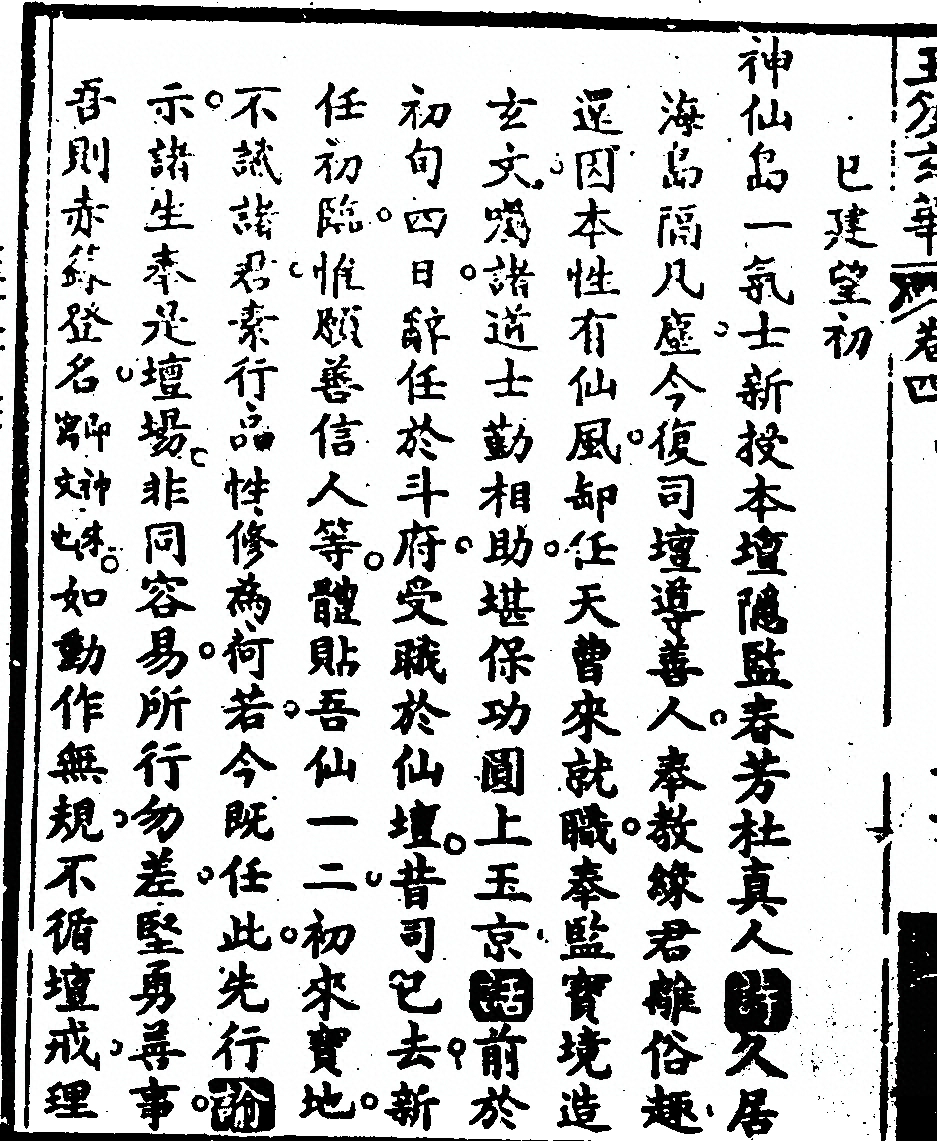 卷四
已建望初
神仙島一氣士新授本壇隱監春芳杜真人詩久居
海島隔凡塵今復司壇導善人奉教緣君離俗趣
還因本性有仙風卸任天曹來就職奉監寶境造
玄文囑諸道士勤相助堪保功圓上玉京話前於
初旬四日辭任於斗府受職於仙壇昔司已去新
任初臨惟願善信人等體貼吾仙一二初來寶地
不識諸君素行品性修為何若今既任此先行諭
示諸生奉是壇場非同容易所行勿差堅勇善事
吾則赤籙登名如動作無規不循壇戒理